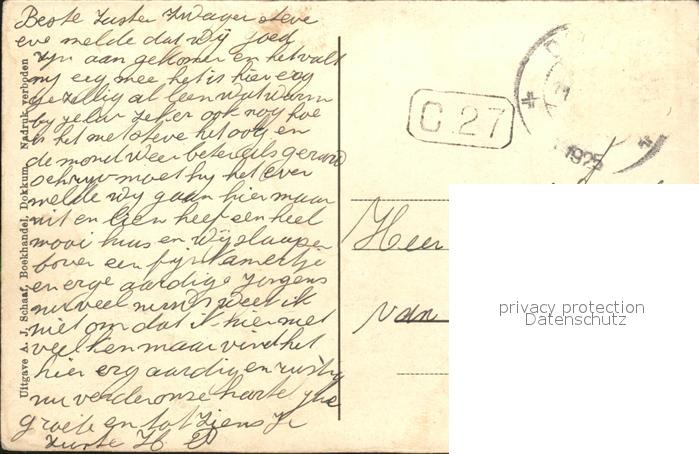 Beste Zuster Zwager steve
eve melde dat wij goed
zijn aan gekomen en het valt
my erg mee het is hier erg
gezellig al leen wat warm
by jelui zeker ook nog hoe
is het met steve het oog en
de mond weer beter als gerard
schrijv moet hy het even
melde wy gaan hier maar
uit en Lien heef een heel
mooi huis en wij slaapen
boven een fijn kamertje
en erge aardige jongens
nu veel nieuws weet ik
niet om dat ik hier niet
veel ken maar vind het
hier erg aardig en rustig
nu verder onze hartelyke
groete en tot ziens Je
Zuste H
Uitgave A. J. Schaaf, Boekhandel, Dokkum. Nadruk verboden
C. 27
1925
Heer
van
privacy protection
Datenschutz